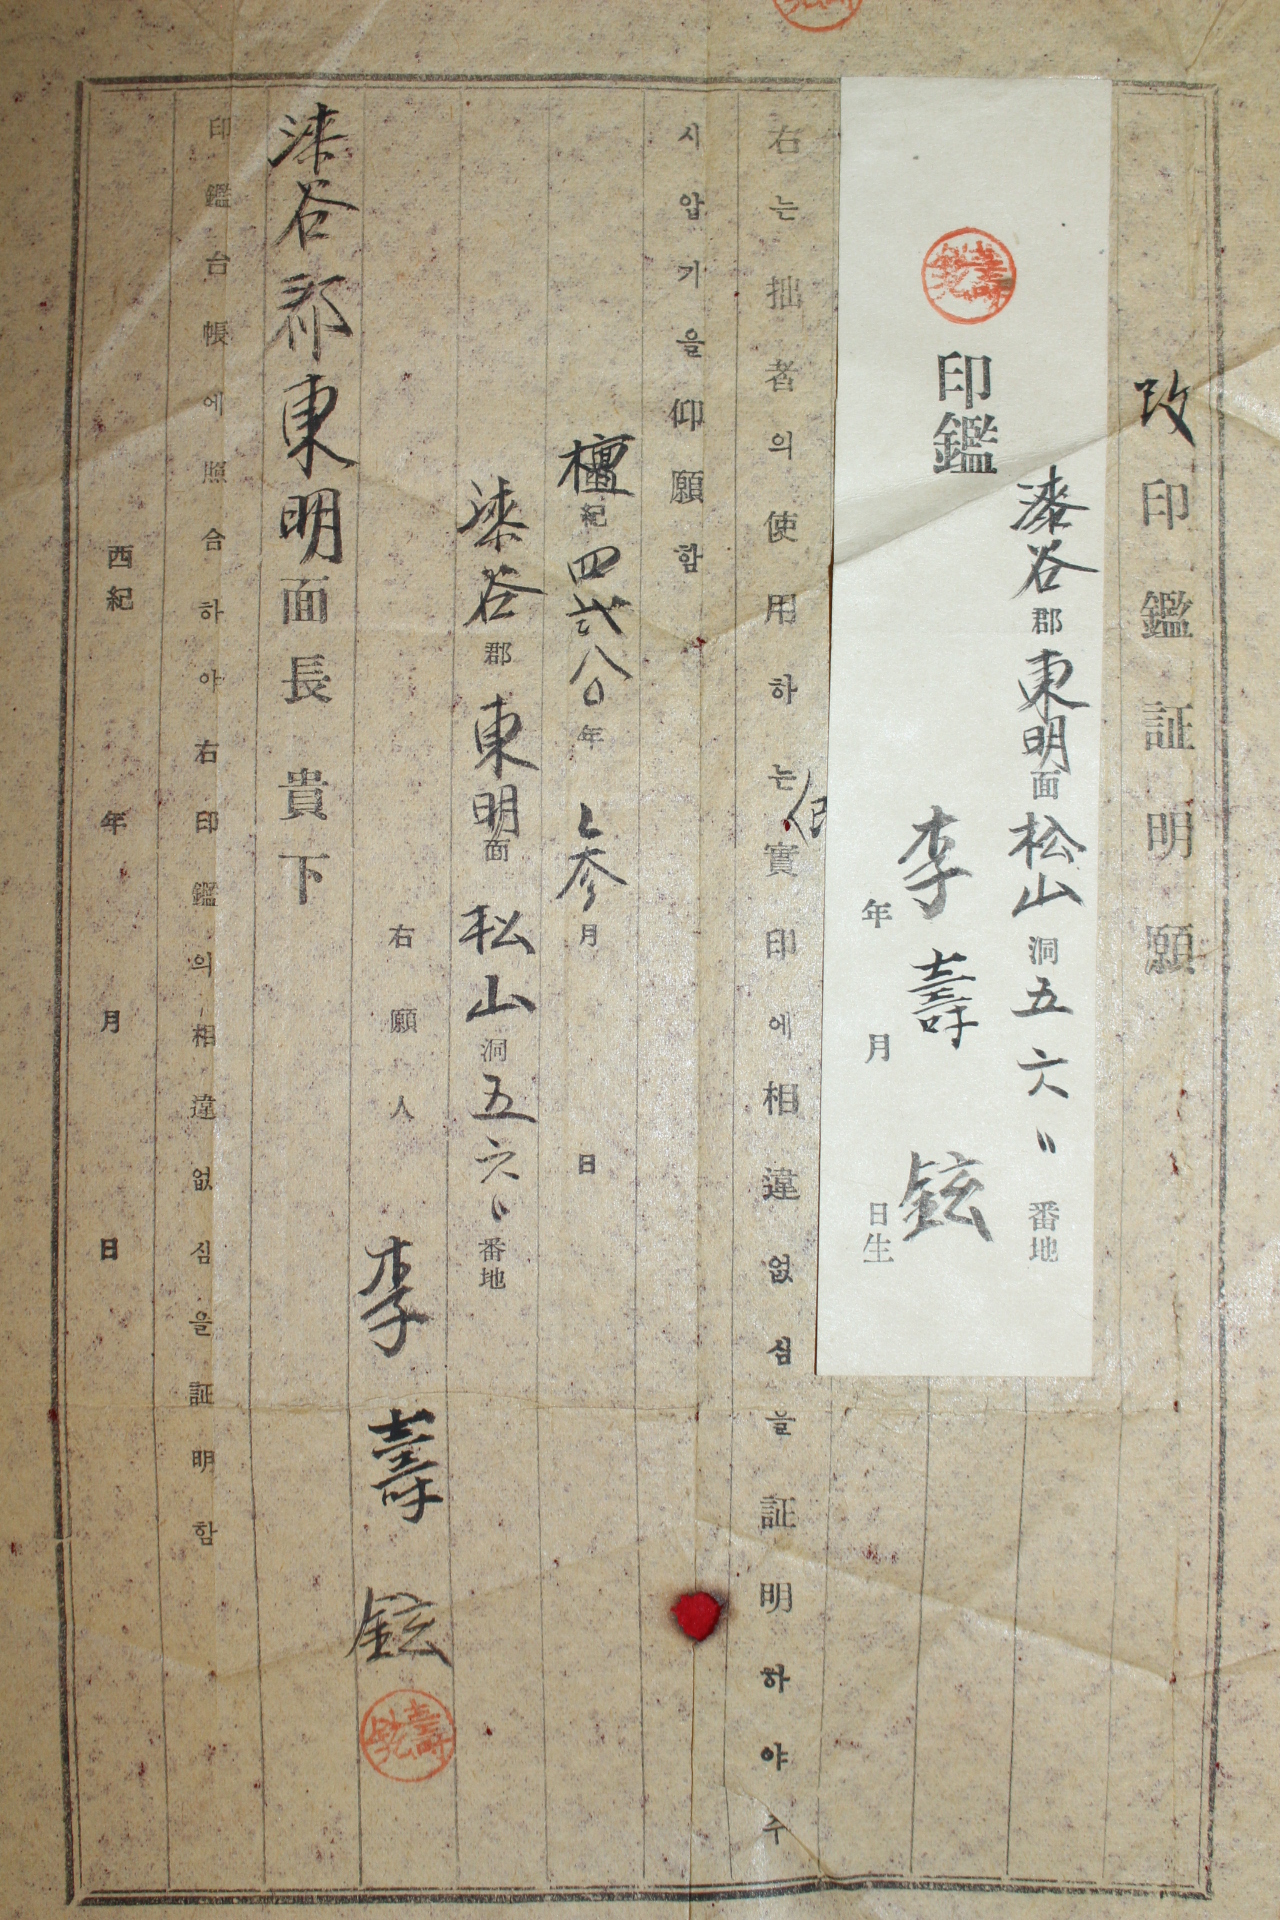 改印鑑証明願
漆谷郡東明面松山洞五六〃番地
印鑑
李壽鉉
年月日生
右는拙者의使用하는實印에相違없심을証明하야주
시압기을仰願함
檀紀四弐八〇年參月日
漆谷郡東明面松山洞五六〃番地
右願人 李壽鉉
漆谷郡東明面長 貴下
印鑑台帳에照合하야右印鑑의相違없심을証明함
西紀 年 月 日